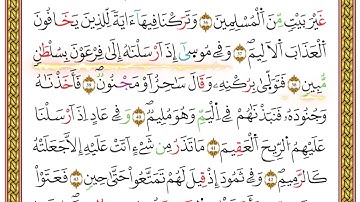 غَيْرَ بَيْتٍ مِّنَ ٱلْمُسْلِمِينَ ۝٣٦ وَتَرَكْنَا فِيهَآ ءَايَةً لِّلَّذِينَ يَخَافُونَ
ٱلْعَذَابَ ٱلْأَلِيمَ ۝٣٧ وَفِى مُوسَىٰٓ إِذْ أَرْسَلْنَٰهُ إِلَىٰ فِرْعَوْنَ بِسُلْطَٰنٍ
مُّبِينٍ ۝٣٨ فَتَوَلَّىٰ بِرُكْنِهِۦ وَقَالَ سَٰحِرٌ أَوْ مَجْنُونٌ ۝٣٩ فَأَخَذْنَٰهُ
وَجُنُودَهُۥ فَنَبَذْنَٰهُمْ فِى ٱلْيَمِّ وَهُوَ مُلِيمٌ ۝٤٠ وَفِى عَادٍ إِذْ أَرْسَلْنَا
عَلَيْهِمُ ٱلرِّيحَ ٱلْعَقِيمَ ۝٤١ مَا تَذَرُ مِن شَىْءٍ أَتَتْ عَلَيْهِ إِلَّا جَعَلَتْهُ
كَٱلرَّمِيمِ ۝٤٢ وَفِى ثَمُودَ إِذْ قِيلَ لَهُمْ تَمَتَّعُوا۟ حَتَّىٰ حِينٍ ۝٤٣ فَعَتَوْا۟